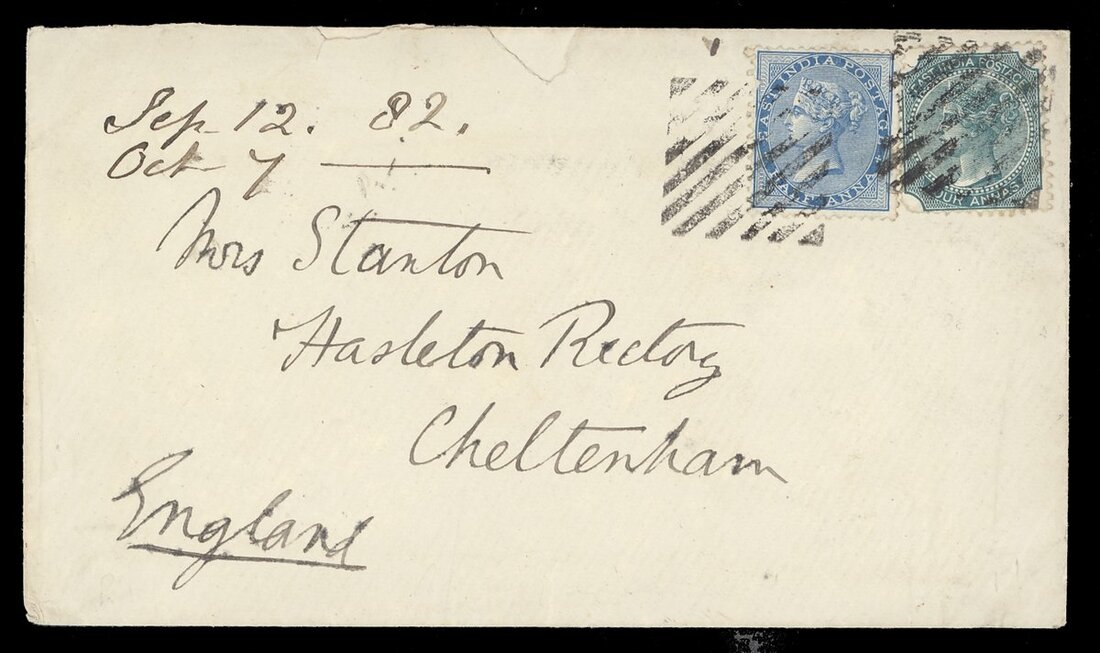 Sep 12. 82.
Oct 7
EAST INDIA POSTAGE
HALF ANNA
EAST INDIA POSTAGE
FOUR ANNAS
Mrs Stanton
Hasleton Rectory
Cheltenham
England